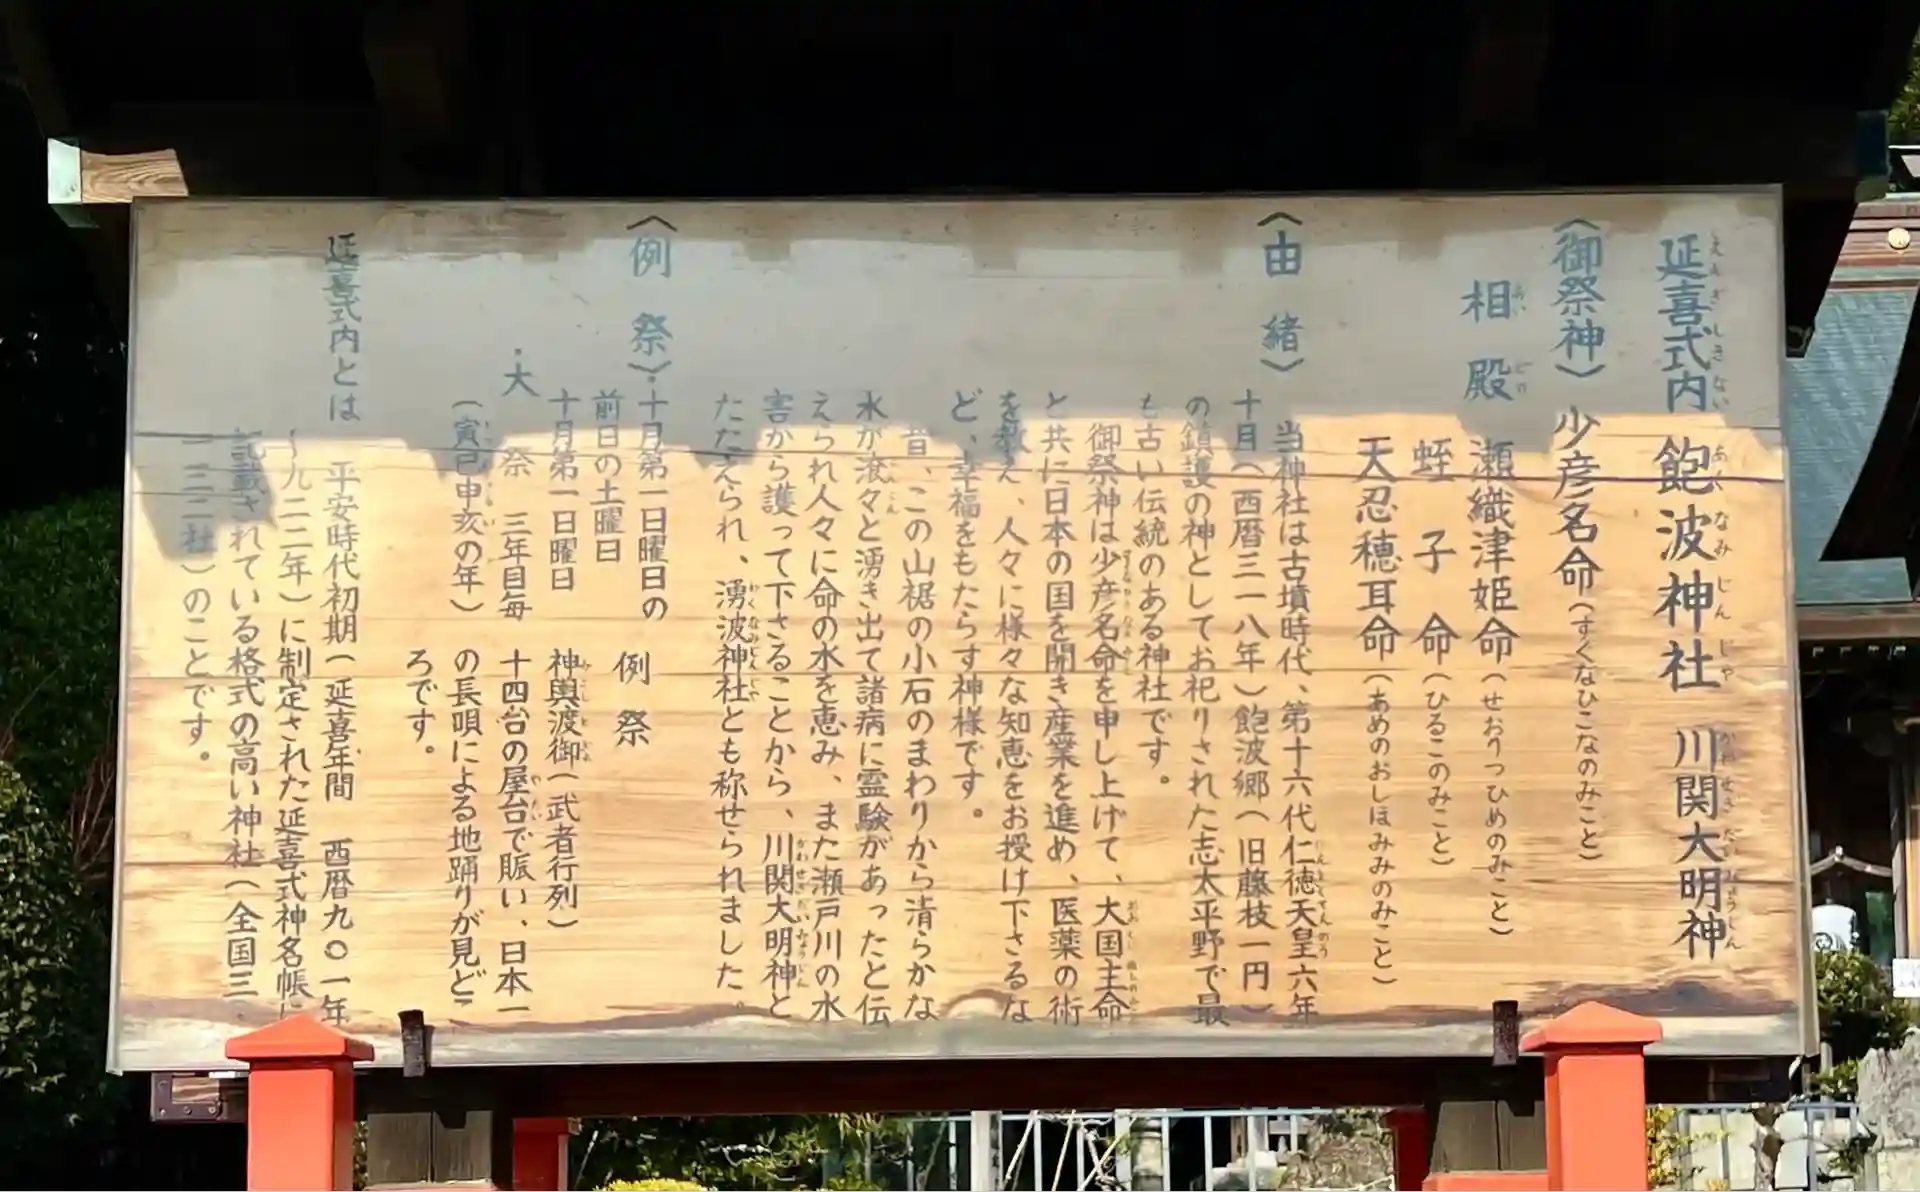 延喜式内 飽波神社 川関大明神
〈御祭神〉少彦名命(すくなひこなのみこと)
相殿 瀬織津姫命(せおりつひめのみこと)
蛭子命(ひるこのみこと)
天忍穂耳命(あめのおしほみみのみこと)
〈由緒〉
当神社は古墳時代、第十六代仁徳天皇六年
十月(西暦三一八年)飽波郷(旧藤枝一円)
の鎮護の神としてお祀りされた志太平野で最
も古い伝統のある神社です。
御祭神は少彦名命を申し上げて、大国主命
と共に日本の国を開き産業を進め、医薬の術
を教え、人々に様々な知恵をお授け下さるな
ど、幸福をもたらす神様です。
昔、この山裾の小石のまわりから清らかな
水が滾々と湧き出て諸病に霊験があったと伝
えられ人々に命の水を恵み、また瀬戸川の水
害から護って下さることから、川関大明神と
たたえられ、湧波神社とも称せられました。
〈例祭〉・十月第一日曜日の 例祭
前日の土曜日
十月第一日曜日 神輿渡御(武者行列)
・大祭 三年目毎 十四台の屋台で賑い、日本一
(寅巳申亥の年) の長唄による地踊りが見どこ
ろです。
延喜式内とは
平安時代初期(延喜年間 西暦九〇一年
〜九二二年)に制定された延喜式神名帳に
記載されている格式の高い神社(全国三
一三二社)のことです。